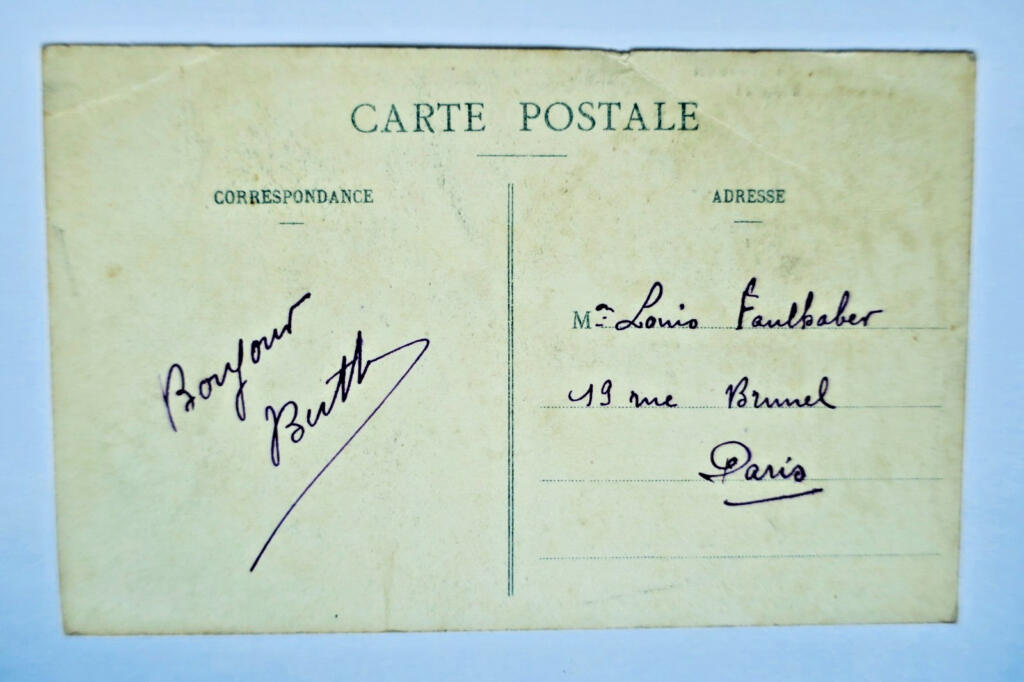 CARTE POSTALE
CORRESPONDANCE
Bonjour
ADRESSE
Mr Louis Faulhaber
19 rue Brunel
Paris